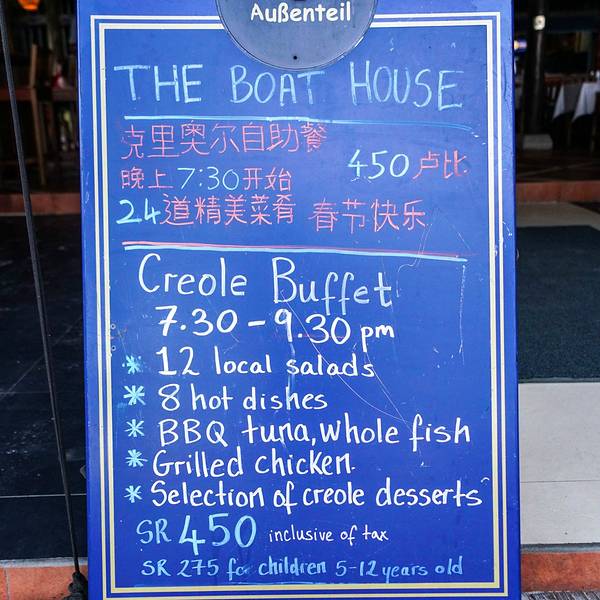 Außenteil
THE BOAT HOUSE
克里奥尔自助餐
450 卢比
晚上7:30开始
24道精美菜肴 春节快乐
Creole Buffet
7.30 - 9.30 pm
* 12 local salads
* 8 hot dishes
* BBQ tuna, whole fish
* Grilled chicken.
* Selection of creole desserts
SR 450 inclusive of tax
SR 275 for children 5-12 years old